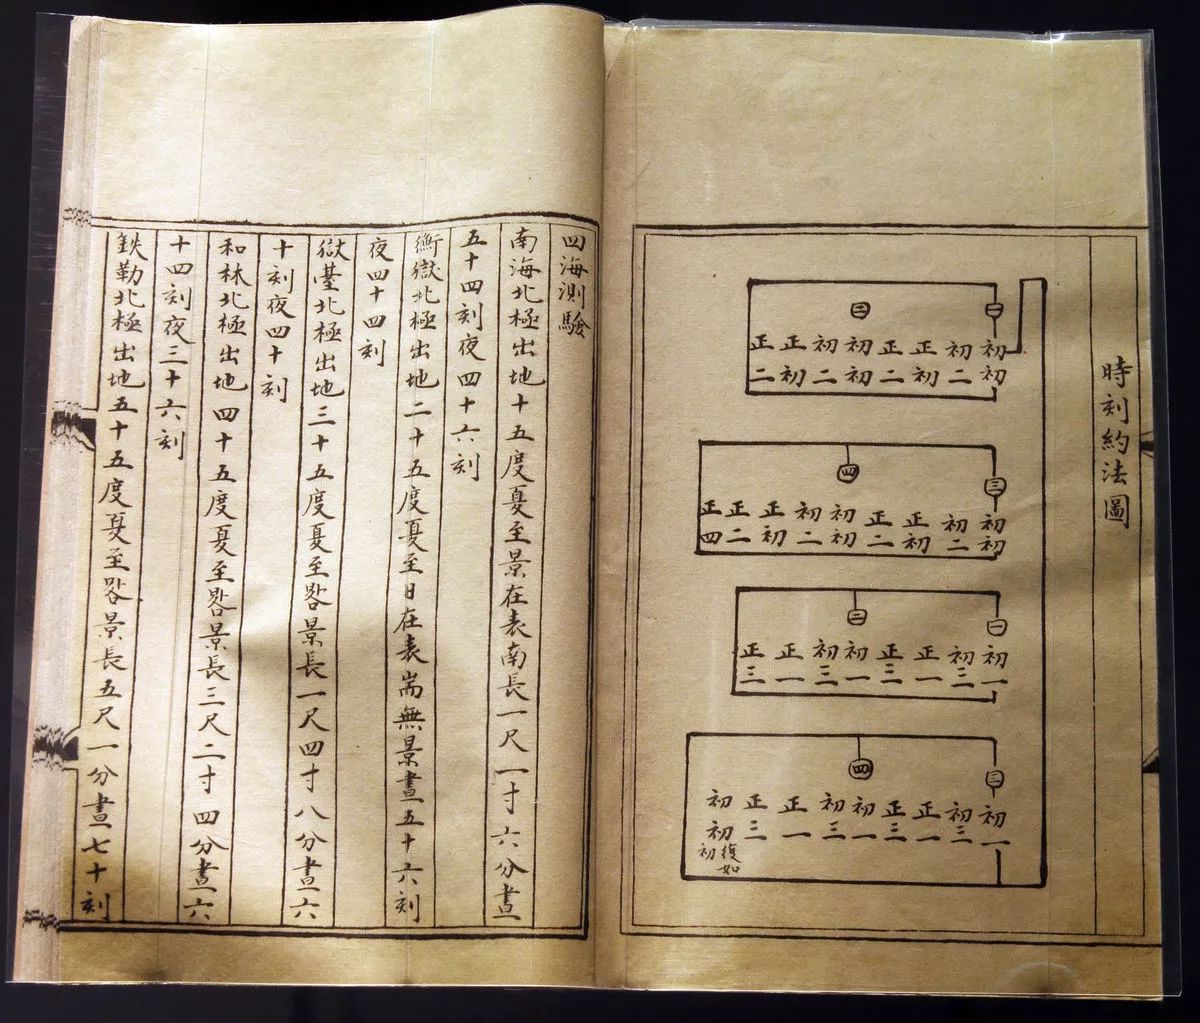 時刻約法圖
一
二
初初
初二
正初
正二
初初
初二
正初
正二
三
四
初初
初二
正初
正二
初初
初二
正初
正二
正四
一
二
初一
初三
正一
正三
初一
初三
正一
正三
三
四
初一
初三
正一
正三
初一
初三
正一
正三
初初
復如
初
四海測驗
南海北極出地十五度夏至景在表南長一尺一寸六分晝
五十四刻夜四十六刻
衡嶽北極出地二十五度夏至日在表耑無景晝五十六刻
夜四十四刻
嶽臺北極出地三十五度夏至晷景長一尺四寸八分晝六
十刻夜四十刻
和林北極出地四十五度夏至晷景長三尺二寸四分晝六
十四刻夜三十六刻
鉄勒北極出地五十五度夏至晷景長五尺一分晝七十刻